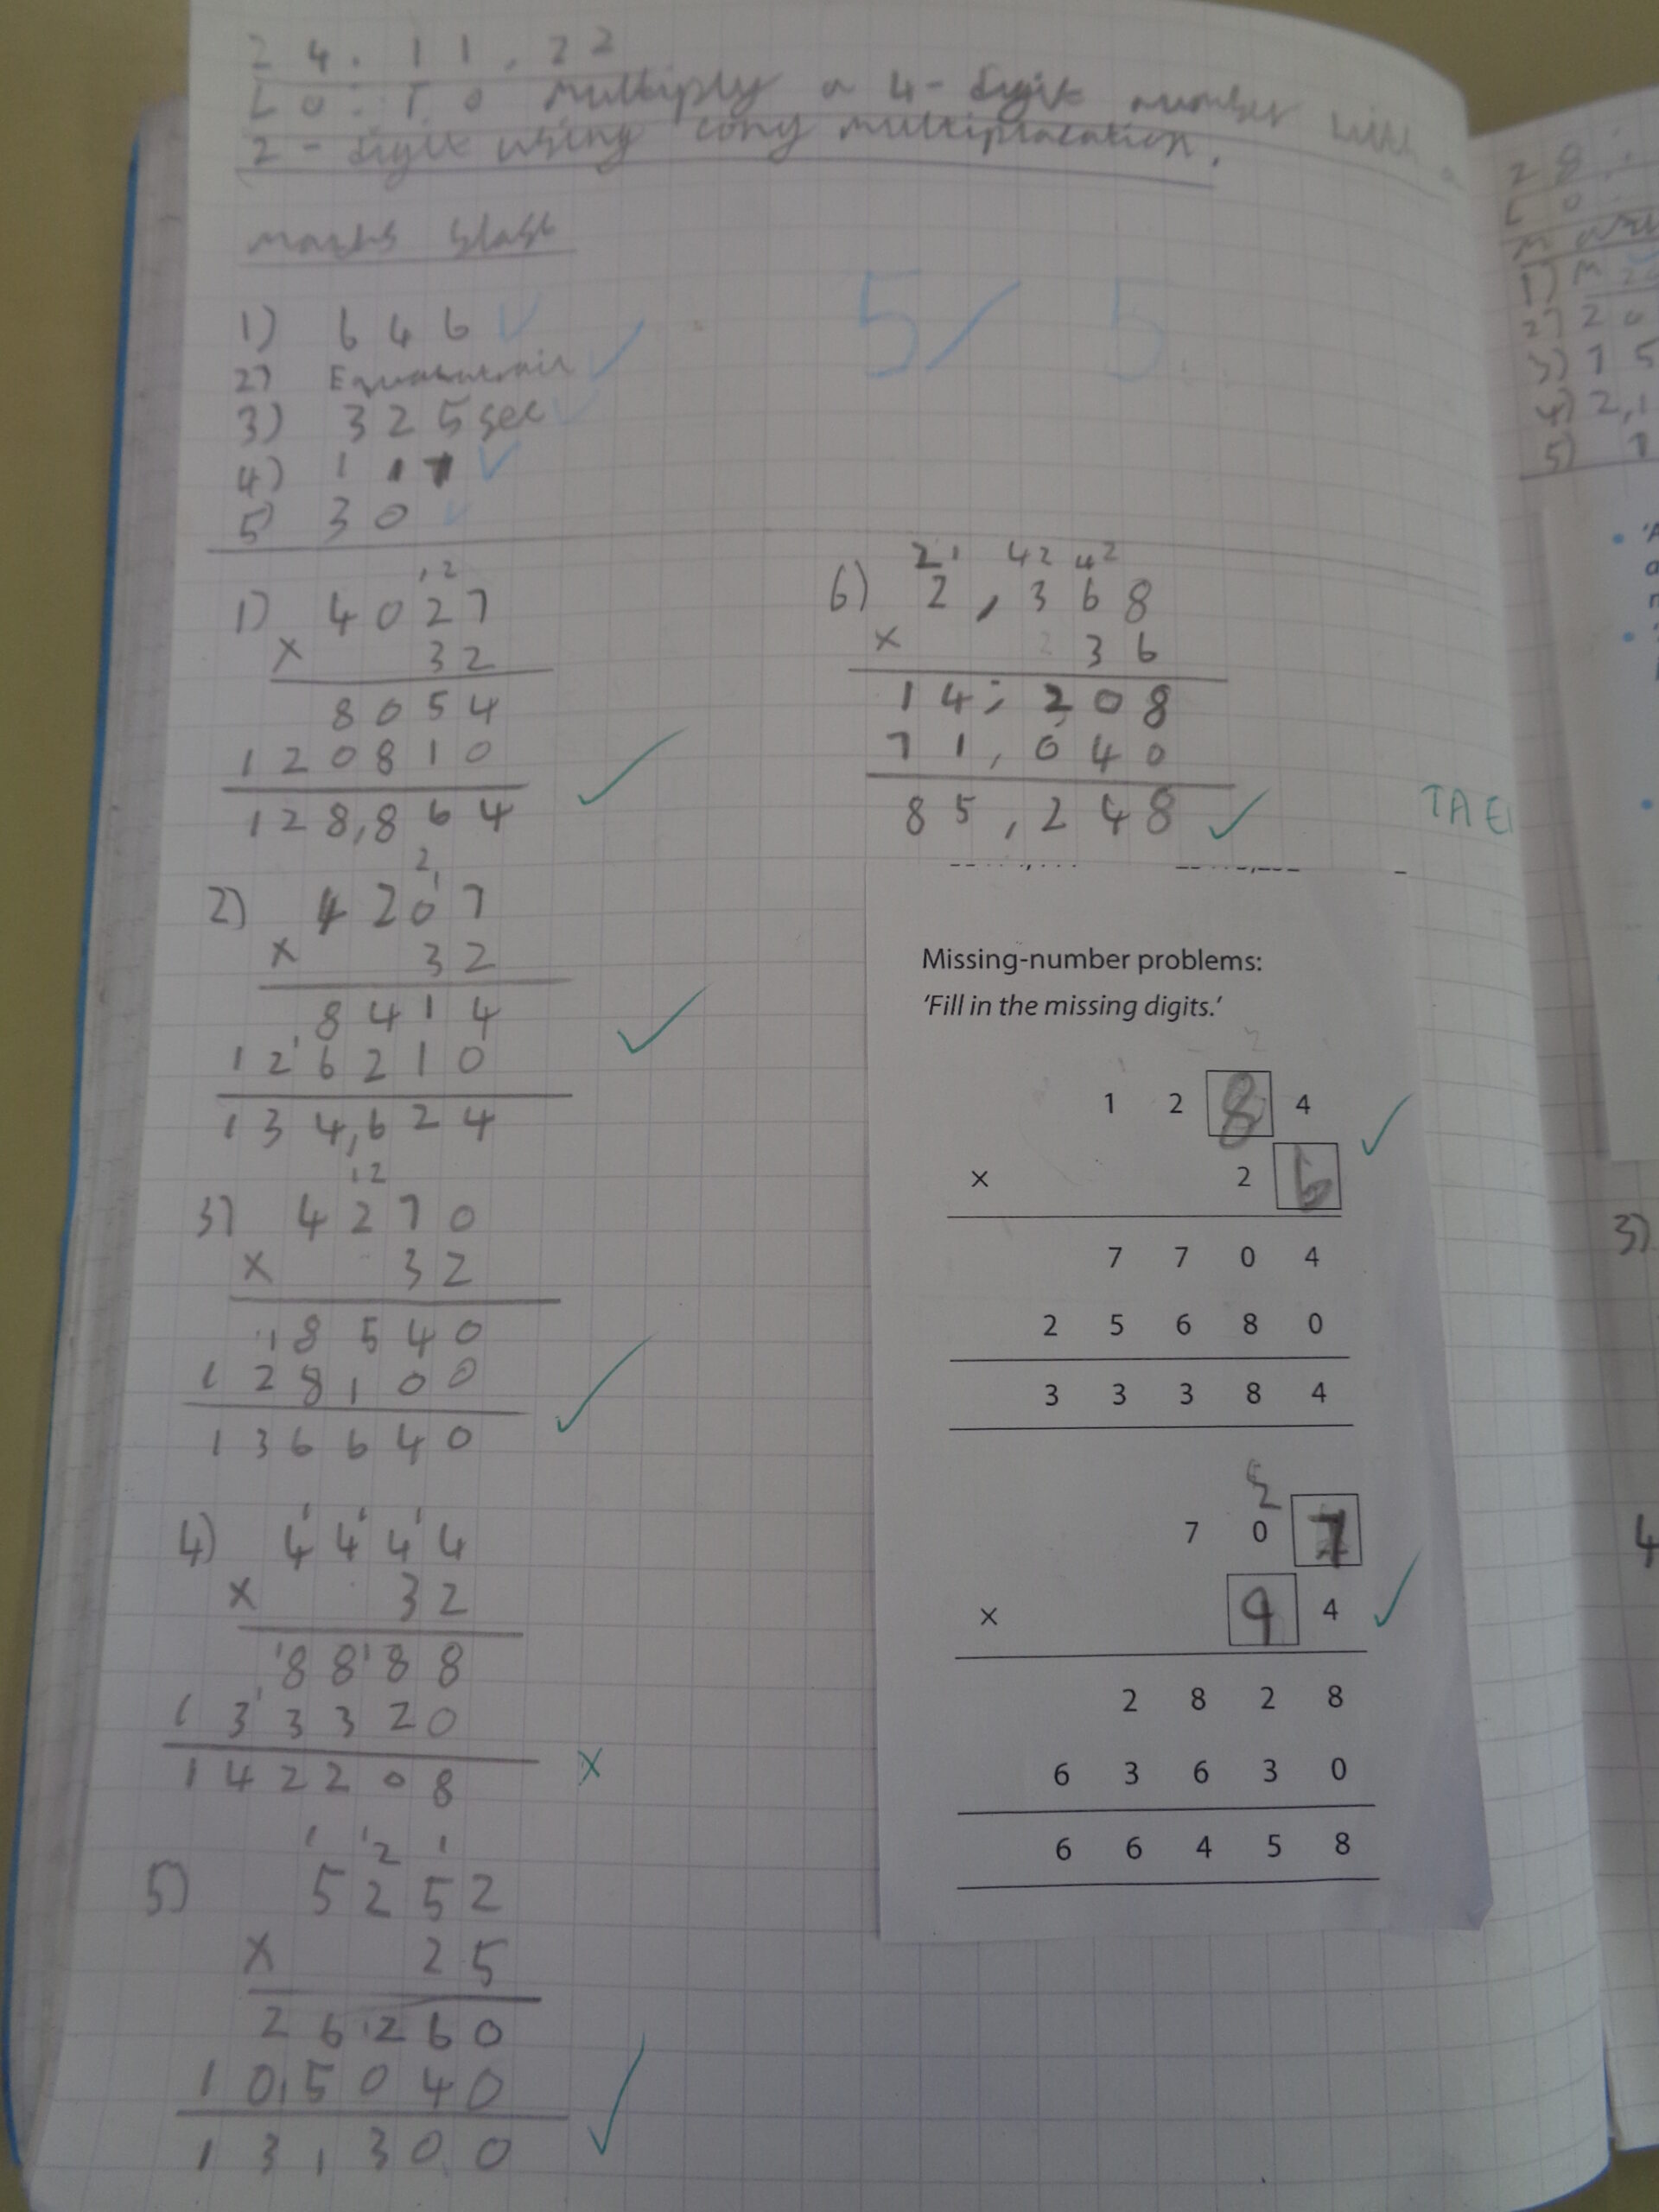 24.11.22
LO: To multiply a 4-digit number with a
2-digit using long multiplacation.
maths blast
1) 646
2)
3) 325sec
4) 1
5) 30
5/5
1) 4027
x 32
8054
120810
128,864
2) 4207
x 32
8414
126210
134,624
3) 4270
x 32
8540
128,100
136640
4) 4444
x 32
8888
133320
142208
5) 5252
x 25
26260
105040
131,300
6) 2,368
x 36
14,208
71,040
85,248
TA
Missing-number problems:
'Fill in the missing digits.'
1 2 8 4
× 2 6
7 7 0 4
2 5 6 8 0
3 3 3 8 4
7 0 7
× 9 4
2 8 2 8
6 3 6 3 0
6 6 4 5 8
28.
LO:
1) M
2) 2
3) 15
4) 2,1
5) 1
3)
4